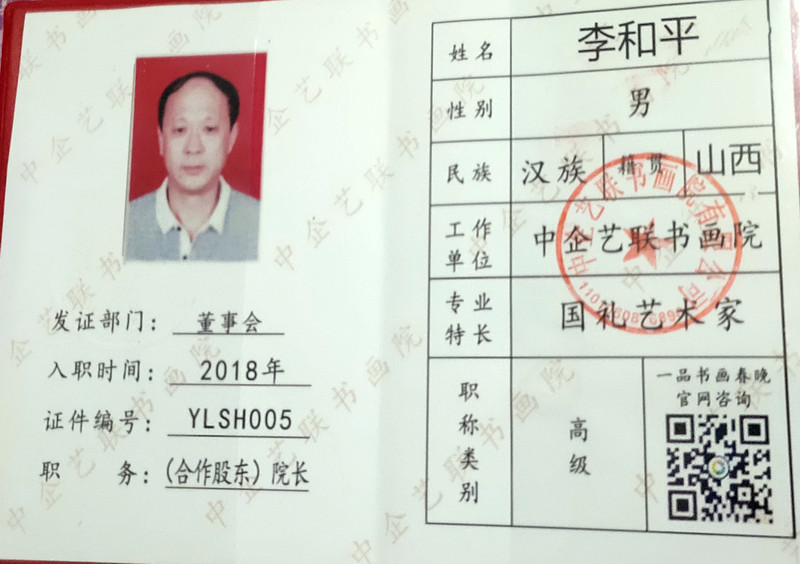 发证部门：董事会
入职时间：2018年
证件编号：YLSH005
职 务：(合作股东)院长
姓名 李和平
性别 男
民族 汉族 籍贯 山西
工作单位 中企艺联书画院
专业特长 国礼艺术家
职称类别 高级
一品书画春晚
官网咨询
中企艺联书画院有限公司
中企艺联书画院